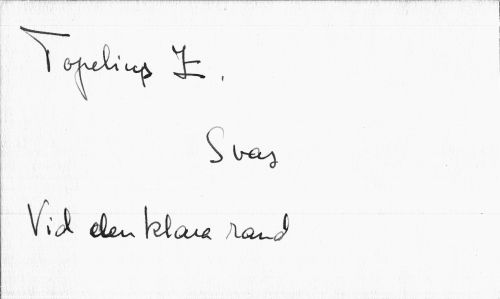 Topelius Z.
Svas
Vid den klara rand